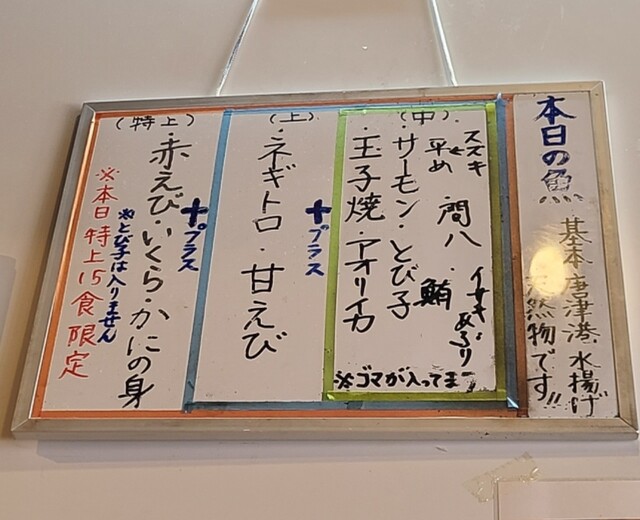 本日の魚
基本唐津港水揚げ
然物です!!
(中)
スズキ
平め 間八・鮪
イサキあぶり
・サーモン・とび子
・玉子焼・アオリイカ
※ゴマが入ってま
(上)
+プラス
・ネギトロ・甘えび
(特上)
+プラス
・赤えび・いくら・かにの身
※とび子は入りません
※本日特上15食限定